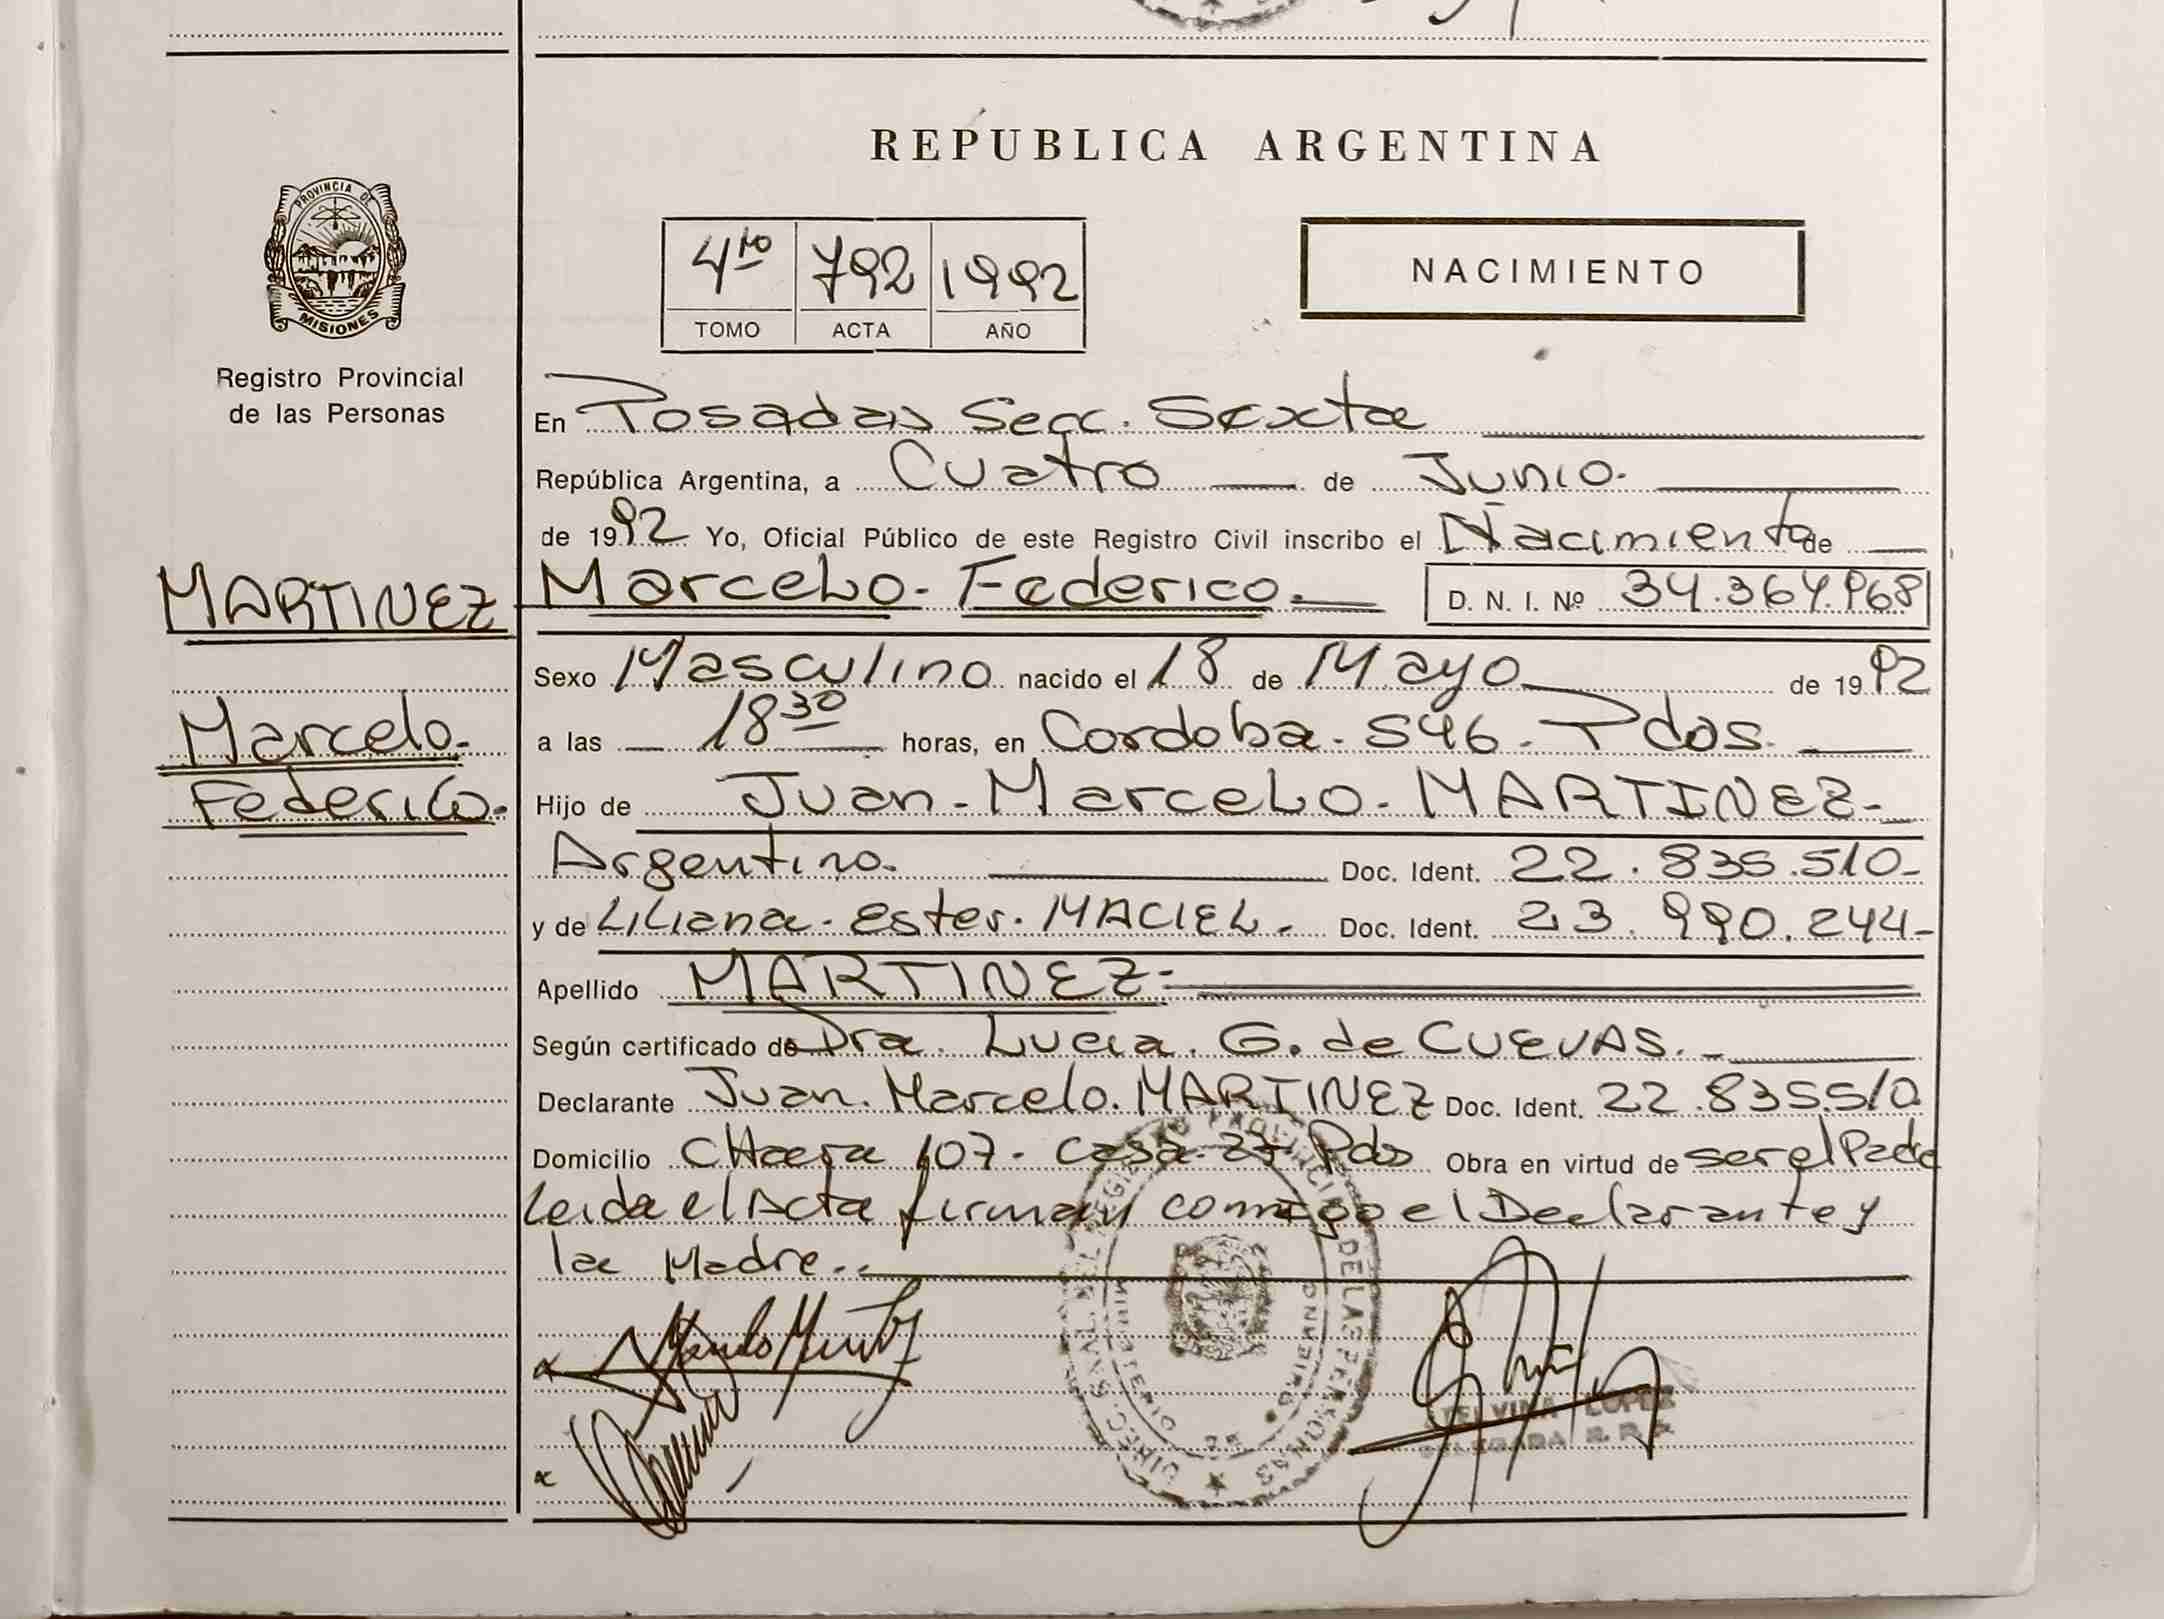 REPUBLICA ARGENTINA
PROVINCIA DE
MISIONES
Registro Provincial
de las Personas
4to 792 1992
TOMO ACTA AÑO
NACIMIENTO
En Posadas Secc. Sexta
República Argentina, a Cuatro de Junio.
de 1992 Yo, Oficial Público de este Registro Civil inscribo el Nacimiento de
MARTINEZ
Marcelo.
Federico.
Marcelo. Federico. D. N. I. Nº 34.364.968
Sexo Masculino nacido el 18 de Mayo de 1992
a las 18 30 horas, en Cordoba. 546. Pdas.
Hijo de Juan. Marcelo. MARTINEZ
Argentino. Doc. Ident. 22.835.510
y de Liliana. Ester. MACIEL. Doc. Ident. 23.990.244
Apellido MARTINEZ
Según certificado de Dra. Lucia. G. de CUEVAS.
Declarante Juan. Marcelo. MARTINEZ Doc. Ident. 22.835.510
Domicilio CHacra 107. Casa 27 Pdas Obra en virtud de ser el Padre
Leida el Acta firman conmigo el Declarante y
la Madre.
DIREC. GRAL. DEL REGISTRO PROVINCIAL DE LAS PERSONAS
MINISTERIO DE GOBIERNO
LOPEZ
DELEGADA R. P. P.